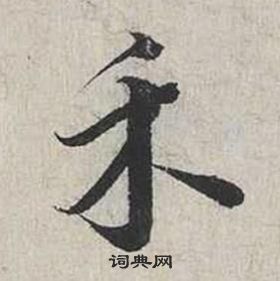 禾
词典网